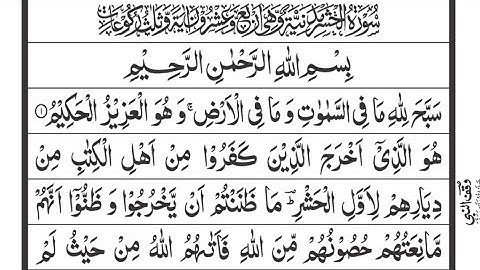 سُوْرَةُ الْحَشْرِ مَدَنِيَّةٌ وَّهِيَ اَرْبَعٌ وَّعِشْرُوْنَ اٰيَةً وَّثَلٰثُ رُكُوْعَاتٍ
بِسْمِ اللهِ الرَّحْمٰنِ الرَّحِيْمِ
سَبَّحَ لِلّٰهِ مَا فِی السَّمٰوٰتِ وَ مَا فِی الْاَرْضِ ۚ وَ هُوَ الْعَزِيْزُ الْحَكِيْمُ ۝۱
هُوَ الَّذِیْۤ اَخْرَجَ الَّذِيْنَ كَفَرُوْا مِنْ اَهْلِ الْكِتٰبِ مِنْ
دِيَارِهِمْ لِاَوَّلِ الْحَشْرِ ؕ مَا ظَنَنْتُمْ اَنْ يَّخْرُجُوْا وَ ظَنُّوْۤا اَنَّهُمْ
مَّانِعَتُهُمْ حُصُوْنُهُمْ مِّنَ اللهِ فَاَتٰىهُمُ اللهُ مِنْ حَيْثُ لَمْ
وقف النبی